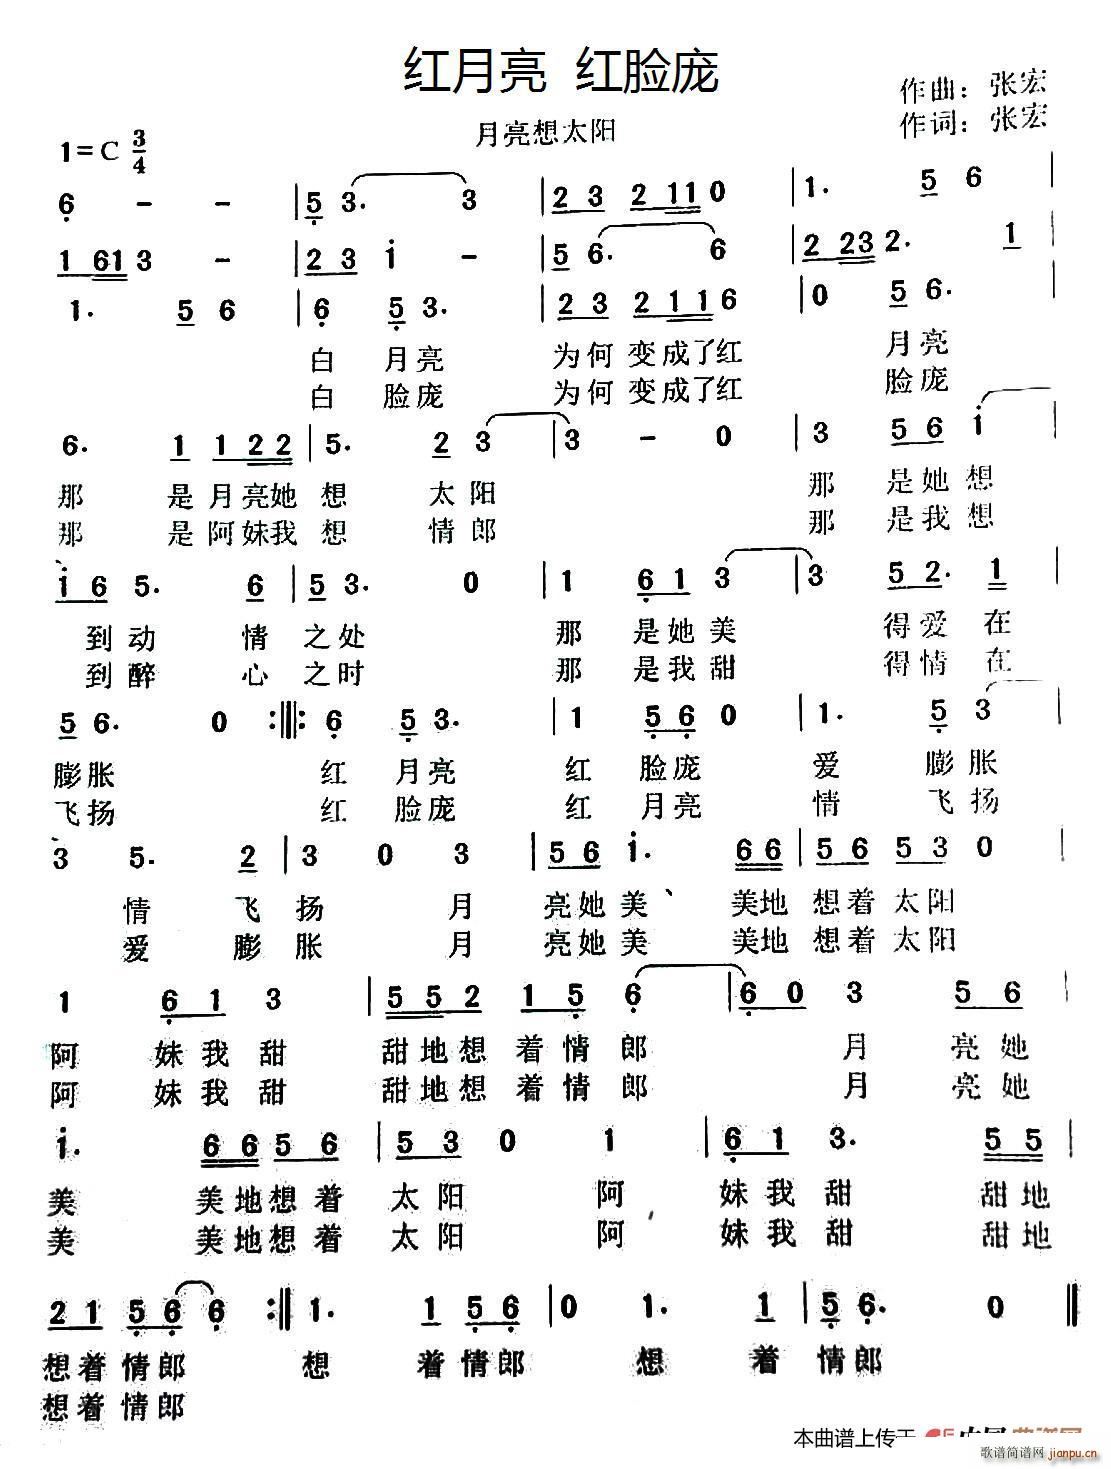 红月亮 红脸庞
作曲：张宏
月亮想太阳
作词：张宏
1=C 3/4
6 - - | 5 3. 3 | 2 3 2 11 0 | 1. 5 6 |
1 61 3 - | 2 3 i - | 5 6. 6 | 2 23 2. 1 |
1. 5 6 | 6 5 3. | 2 3 2 11 6 | 0 5 6. |
白 月亮 为何 变成了红 月亮
白 脸庞 为何 变成了红 脸庞
6. 1 1 22 | 5. 2 3 | 3 - 0 | 3 5 6 i |
那 是月亮她 想 太阳 那 是她想
那 是阿妹我 想 情郎 那 是我想
i 6 5. 6 | 5 3. 0 | 1 6 1 3 | 3 5 2. 1 |
到动 情 之处 那 是她美 得爱 在
到醉 心 之时 那 是我甜 得情 在
5 6. 0 :||: 6 5 3. | 1 5 6 0 | 1. 5 3 |
膨胀 红 月亮 红 脸庞 爱 膨胀
飞扬 红 脸庞 红 月亮 情 飞扬
3 5. 2 | 3 0 3 | 5 6 i. 66 | 5 6 5 3 0 |
情 飞 扬 月 亮她美、 美地 想着太阳
爱 膨 胀 月 亮她美 美地 想着太阳
1 6 1 3 | 55 2 1 5 6 | 6 0 3 5 6 |
阿 妹我甜 甜地想 着情郎 月 亮她
阿 妹我甜 甜地想 着情郎 月 亮她
i. 66 5 6 | 5 3 0 1 | 6 1 3. 55 |
美 美地想着 太阳 阿 妹我甜 甜地
美 美地想着 太阳 阿 妹我甜 甜地
2 1 5 6 6 :|| 1. 1 5 6 | 0 1. 1 | 5 6. 0 ||
想着情郎 想 着情郎 想 着 情郎
想着情郎
本曲谱上传于
歌谱简谱网 jianpu.cn